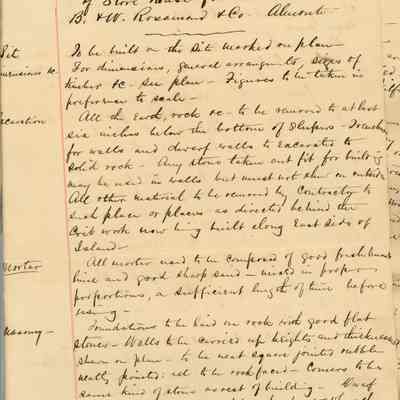 of Store House for
B. & W. Rosamond & Co. Almonte
Site
To be built on the site marked on plan
For dimensions, general arrangements, sizes of
timber &c. see plan - Figures to be taken in
preference to scale -
All the Earth, rock &c - to be removed to at least
six inches below the bottom of Sleepers - Trenches
for walls and dwarf walls to Excavated to
Solid rock - Any stone taken out fit for building
may be used in walls but must not shew on outside
All other material to be removed by Contractor to
such place or places as directed behind the
Crib work now being built along East Side of
Island -
Mortar
All mortar used to be composed of good fresh burnt
lime and good sharp sand - mixed in proper
proportions, a sufficient length of time before
using -
Masonry -
Foundations to be laid on rock with good flat
stones - Walls to be carried up heights and thicknesses
shewn on plan - to be neat square jointed rubble
neatly pointed: not to be rock faced - Corners to be
same kind of stone as rest of building - Dwarf